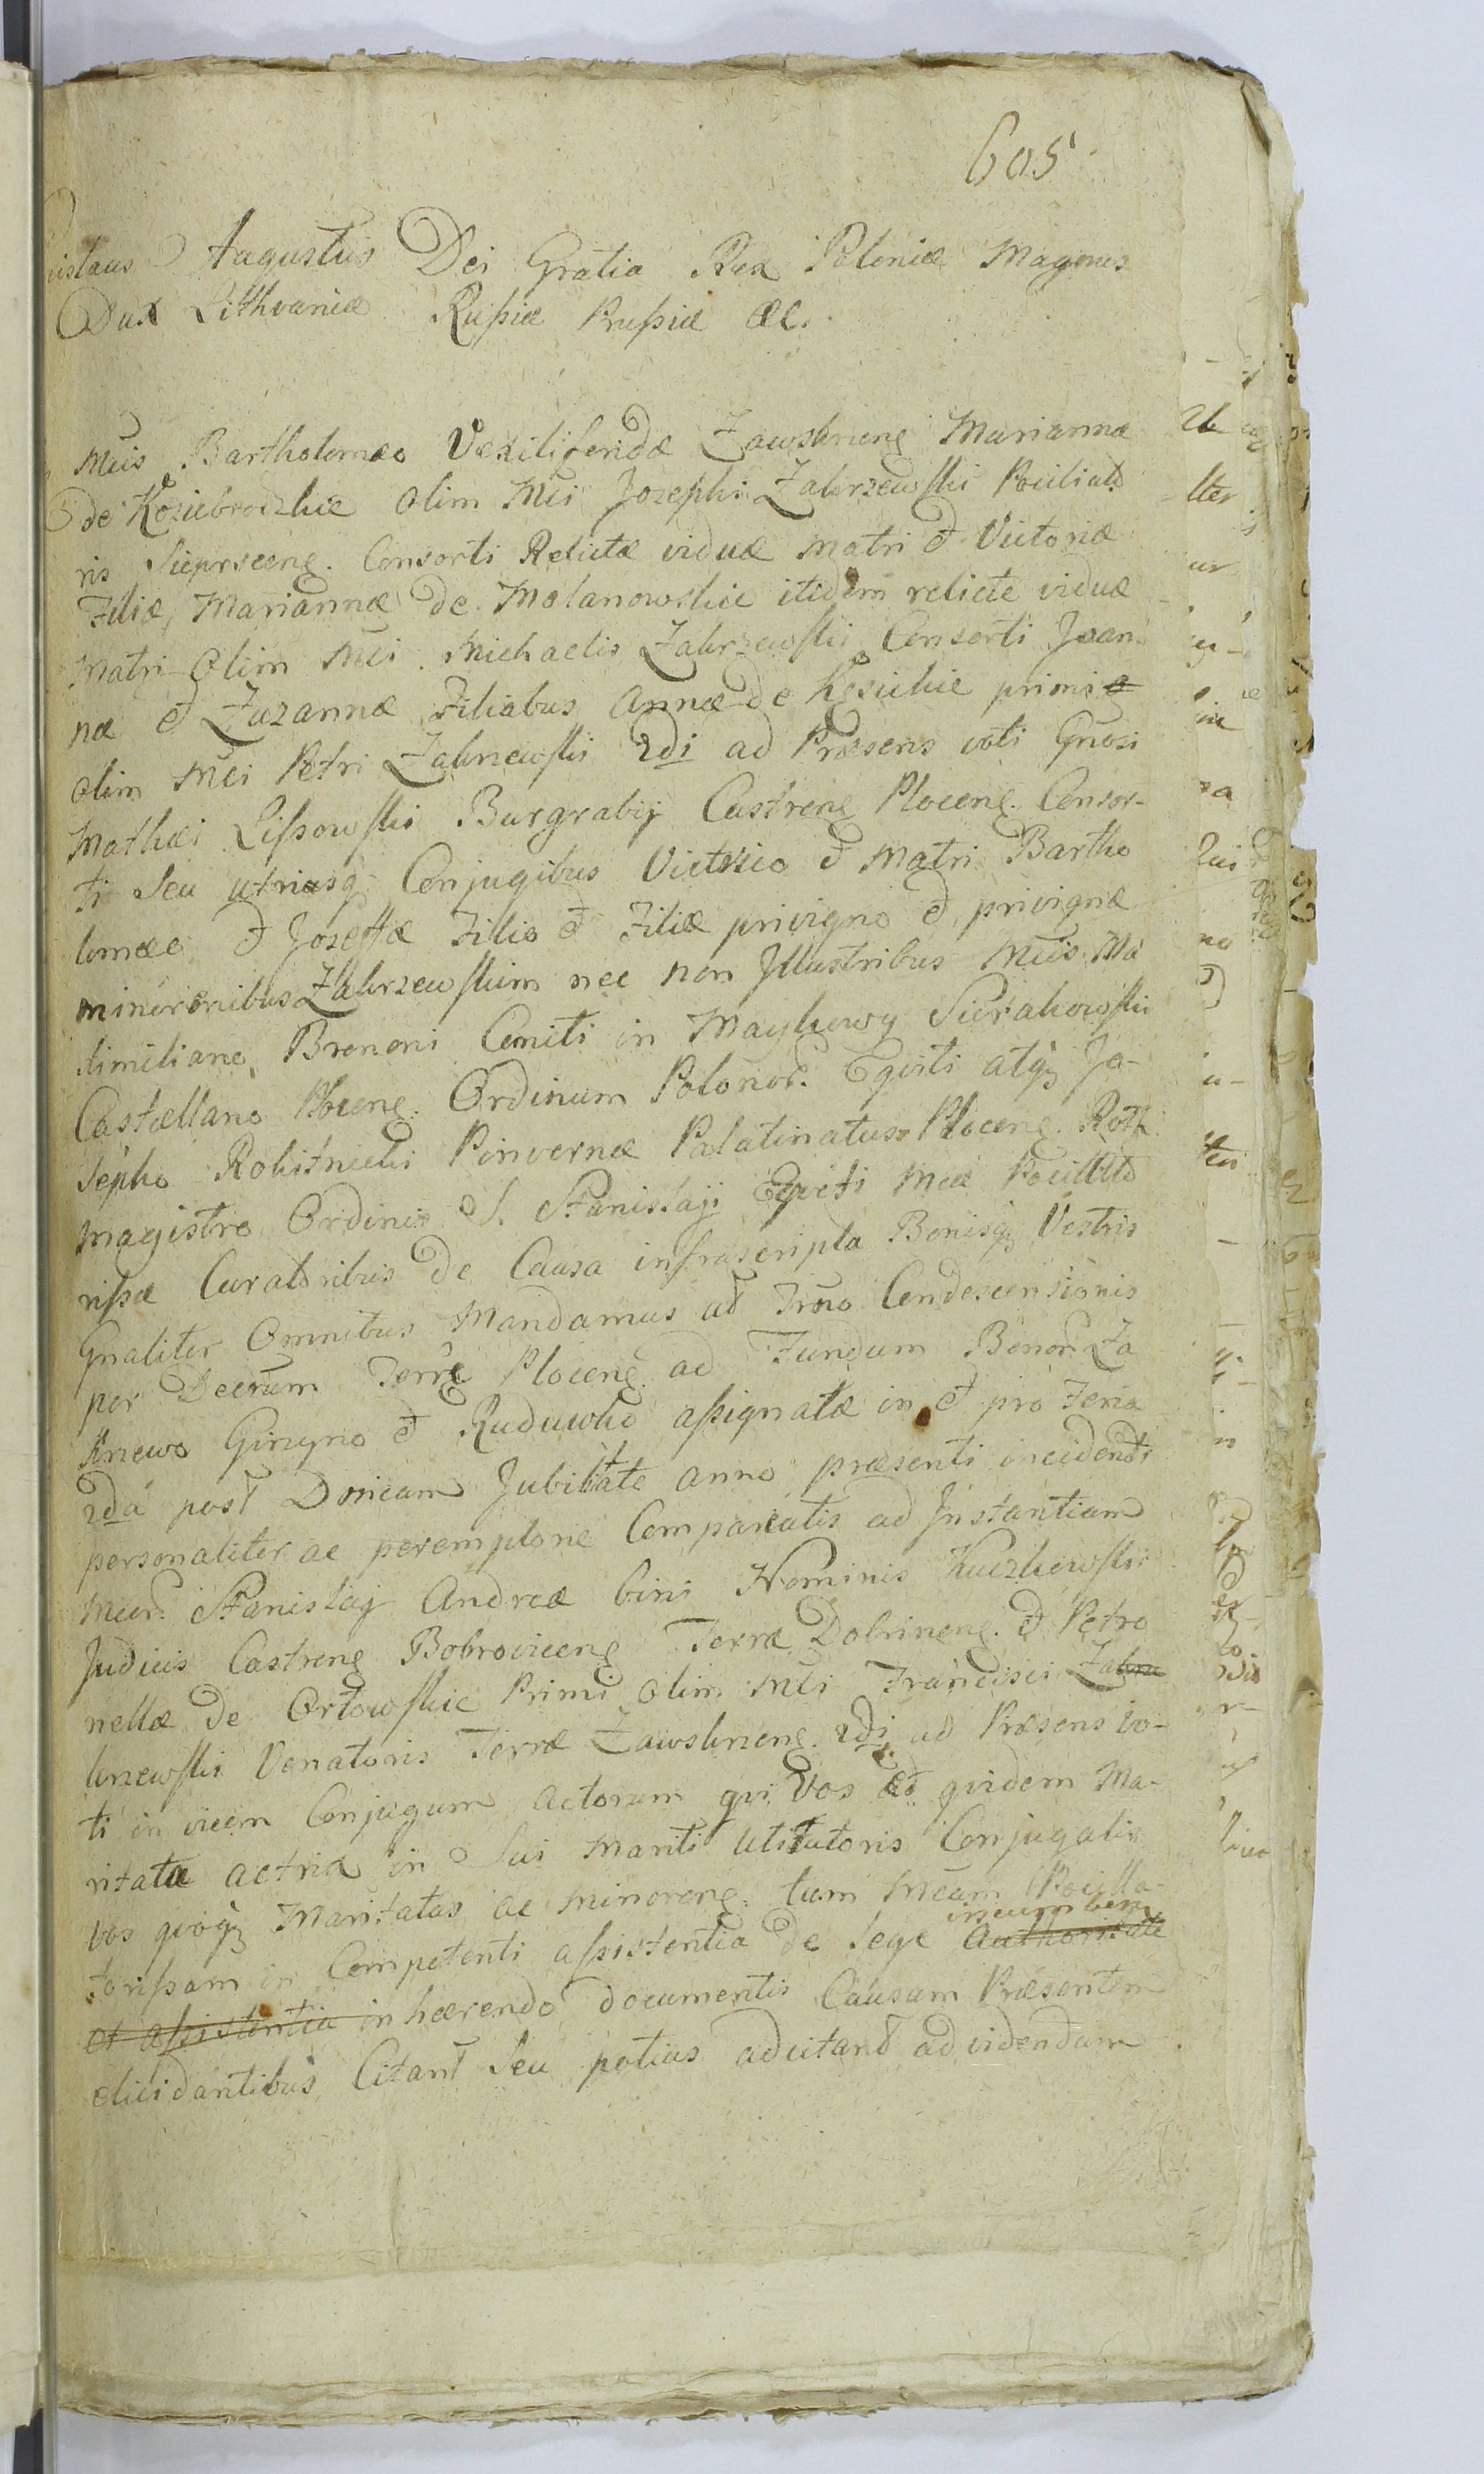 605
nislaus Augustus Dei Gratia Rex Poloniæ Magnus
Dux Lithvaniæ Rußiæ Prußiæ &c.
Mcis Bartholomæo Vexiliferidæ Zawskrieng Mariannæ
de Koziebrodzkie olim Mci Josephi Zakrzewſki Pocillato
ris Sieprsceng. Consorti Relictæ viduæ Matri et Victoriæ
Filiæ, Mariannæ de Molanowskie itidem relicte viduæ
Matri olim Mci Michaelis Zakrzewſki Consorti Joan
næ et Zuzannæ Filiabus Annæ de Kęsickie primi
olim Mci Petri Zakrzewſki 2di ad Præsens voti Gnosi
Mathæi Lißowſki Burgrabij Castreng Ploceng. Consor-
ti Seu utriusq Conjugibus Victrico et Matri Bartho
lomæo et Joseffæ Filio et Filiæ privigno et privignæ
minorenibus Zakrzewſkim nec non Jllustribus Mcis Ma
ximiliano, Bronony Comiti in Maykowy Sierakowſki
Castellano Ploceng. Ordinum Polonor. Eqviti atqz Jo-
sepho Rokitnicki Pincernæ Palatinatus Ploceng. Roth
magistro Ordinis S. Stanislaji Eqviti Mcæ Pocillato
rißæ Curatoribus de Causa infrascripta Bonisqz Vestris
Gnaliter Omnibus Mandamus ad Trno Condescensionis
per Decrum Terre Ploceng. ad Fundum Bonor. Za
krzewo Girzyno et Rudowko aßignatæ in et pro Feria
2da post Dnicam Jubilate anno præsenti incidendi
personaliter ac peremptorie Compareatis ad Jnstantiam
Mcor. Stanislaj Andreæ bini Nominis Kuczkowſki
Judicis Castreng Bobroviceng Terræ Dobrineng. et Petro
nellæ de Orłowſkie Primi olim Mci Francisci Zakrze
krzewſki Venatoris Terræ Zawskrieng. 2di ad Præsens vo-
ti in vicem Conjugum Actorum qvi Vos et qvidem Ma-
ritata actrix in Sui Mariti Uti Tutoris Conjugalis
vos qvoqz Maritatas ac minoreng. tum Mcam Pocilla-
torißam in Competenti aßistentia de lege Authoritate
incumbem
et aßistentia inhærendo documentis Causam Præsentem
elucidantibus Citant Seu potius adcitant ad videndum